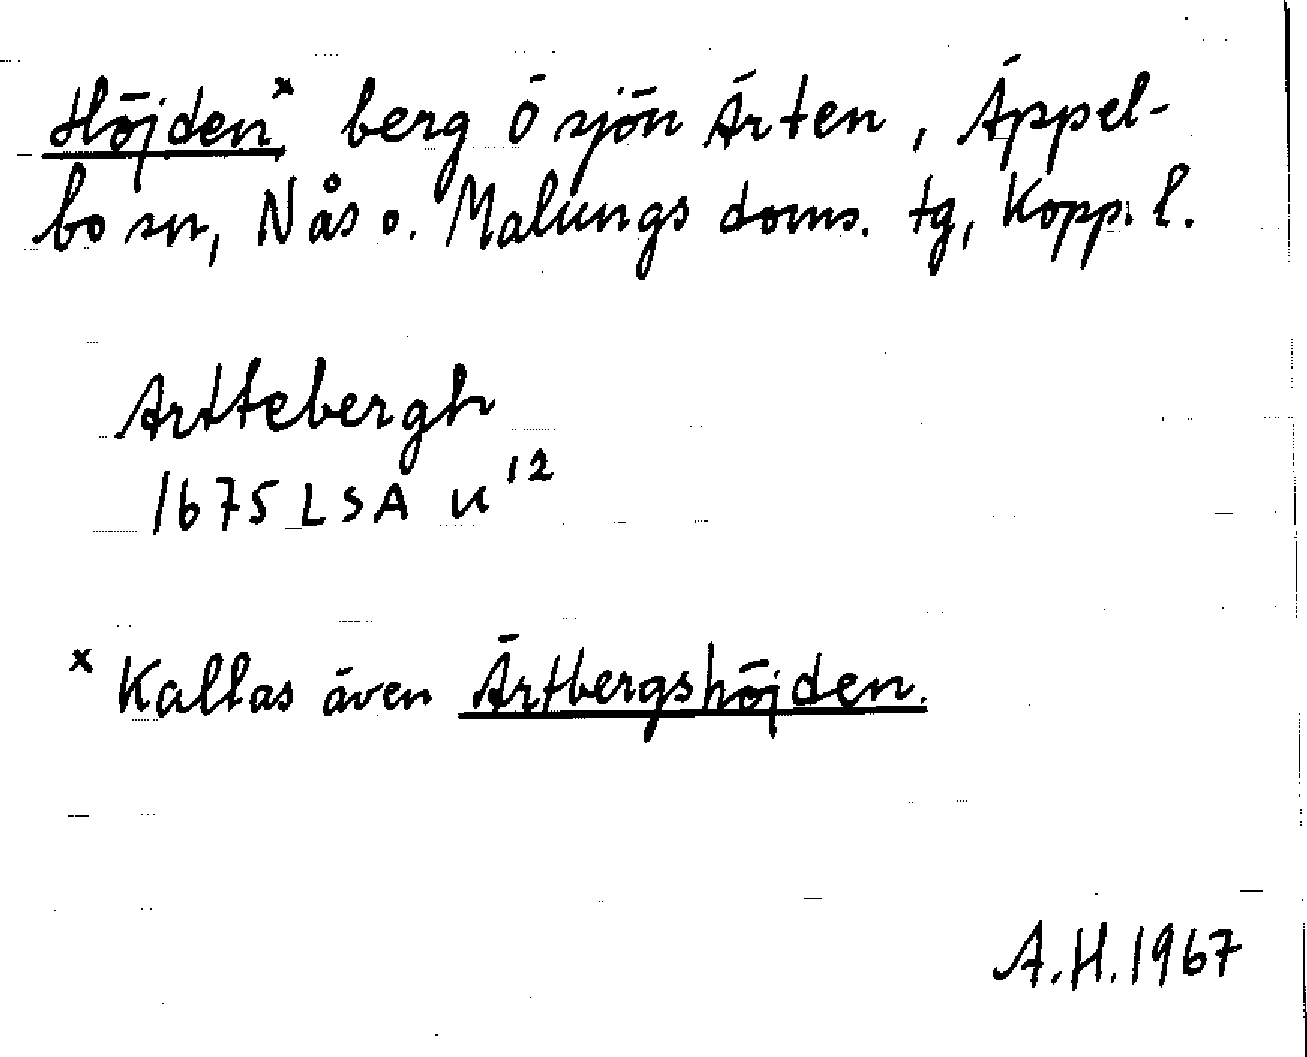 Höjden x berg Ö sjön Ärten, Äppel-
bo sn, Nås o. Malungs doms. tg, Kopp. l.
Arttebergh
1675 LSA U 12
x Kallas även Ärtbergshöjden.
A.H. 1967